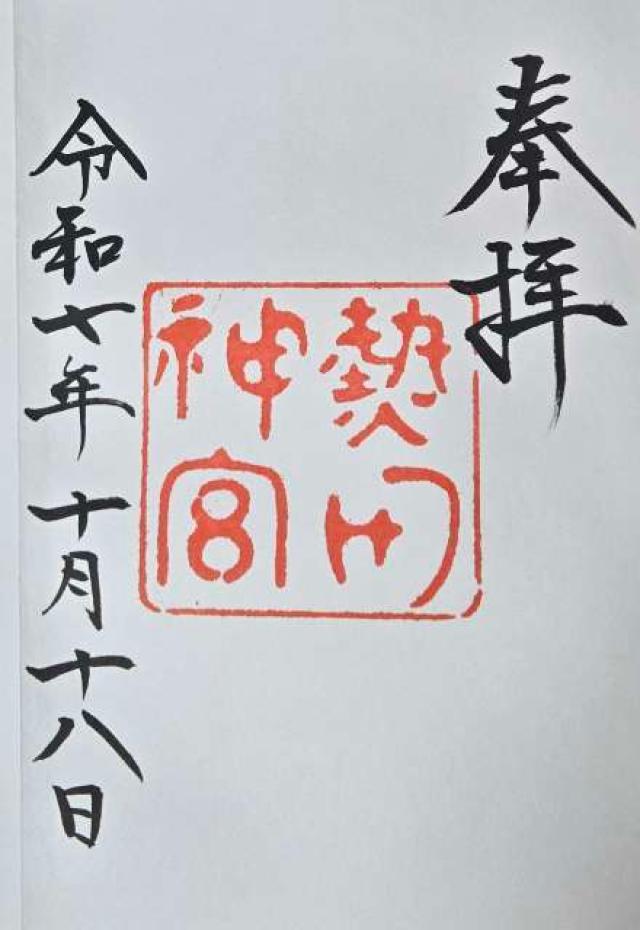 奉拝
熱田
神宮
令和七年十月十八日